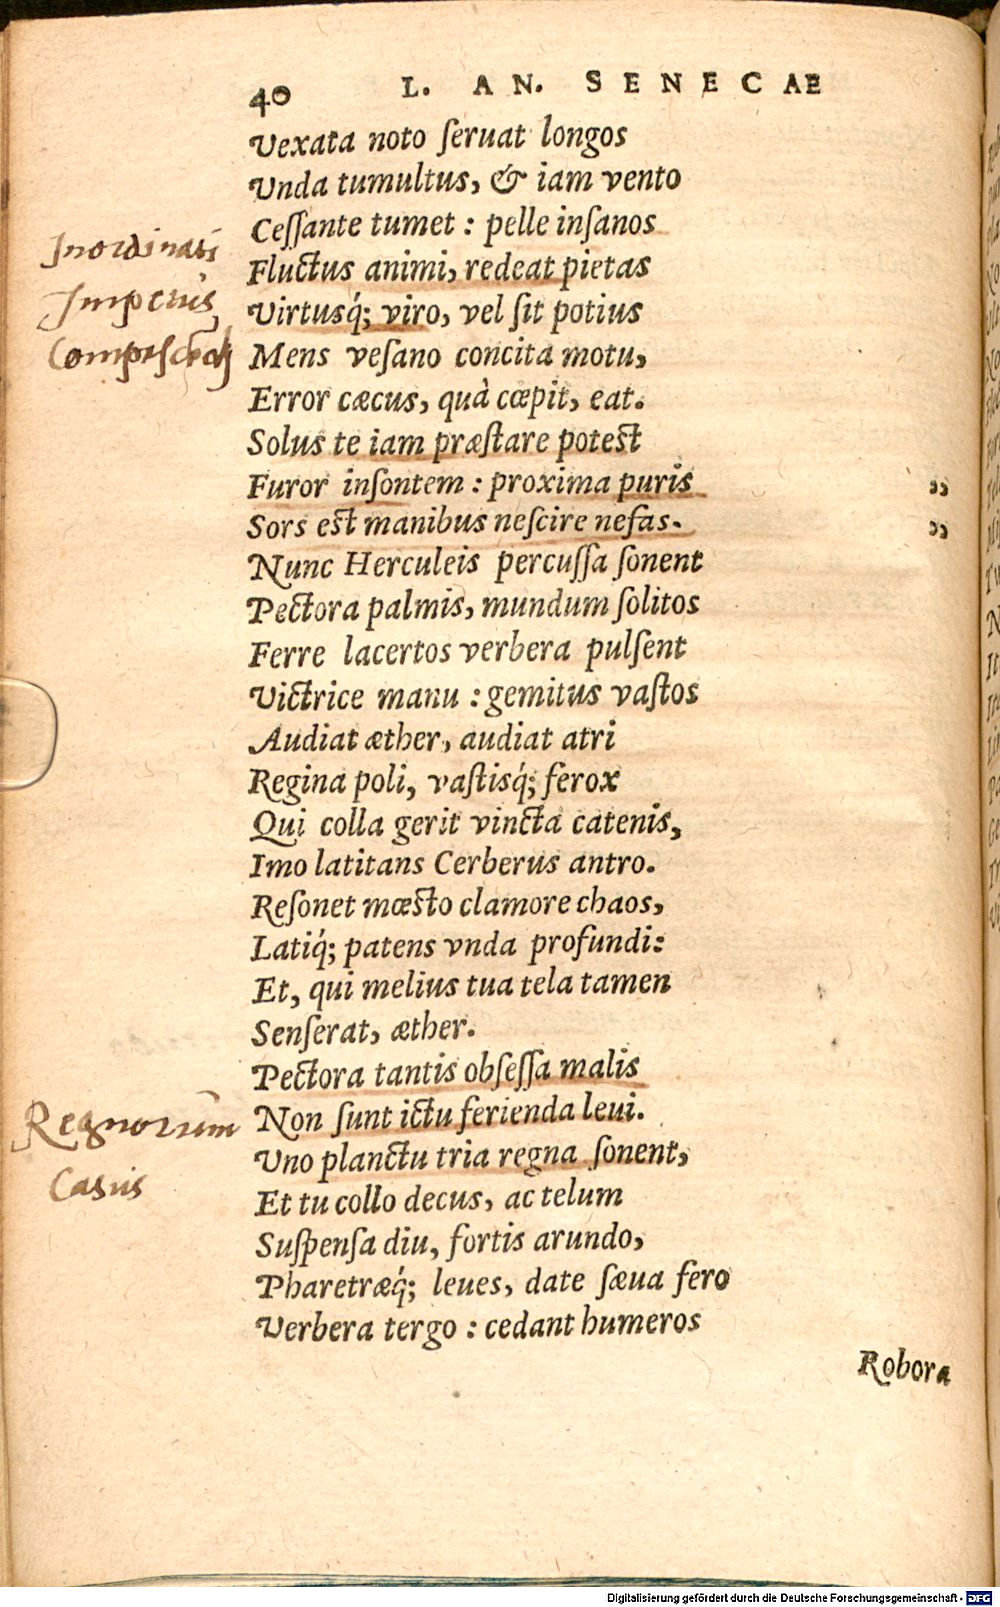 40 L. AN. SENECAE
Vexata noto ſeruat longos
Vnda tumultus, & iam vento
Ceſſante tumet : pelle inſanos
Inordinati
Fluctus animi, redeat pietas
Impetus
Virtusq́; viro, vel ſit potius
Mens veſano concita motu,
Error cæcus, quà cœpit, eat.
Solus te iam præſtare potest
Furor inſontem : proxima puris „
Sors est manibus neſcire nefas. „
Nunc Herculeis percuſſa ſonent
Pectora palmis, mundum ſolitos
Ferre lacertos verbera pulſent
Victrice manu : gemitus vaſtos
Audiat æther, audiat atri
Regina poli, vaſtisq́; ferox
Qui colla gerit vincta catenis,
Imo latitans Cerberus antro.
Reſonet mœsto clamore chaos,
Latiq́; patens vnda profundi:
Et, qui melius tua tela tamen
Senſerat, æther.
Pectora tantis obſeſſa malis
Regnorum
Non ſunt ictu ferienda leui.
Vno planctu tria regna ſonent,
Casus
Et tu collo decus, ac telum
Suſpenſa diu, fortis arundo,
Pharetræq́; leues, date ſæua fero
Verbera tergo : cedant humeros
Robora
Digitalisierung gefördert durch die Deutsche Forschungsgemeinschaft - DFG